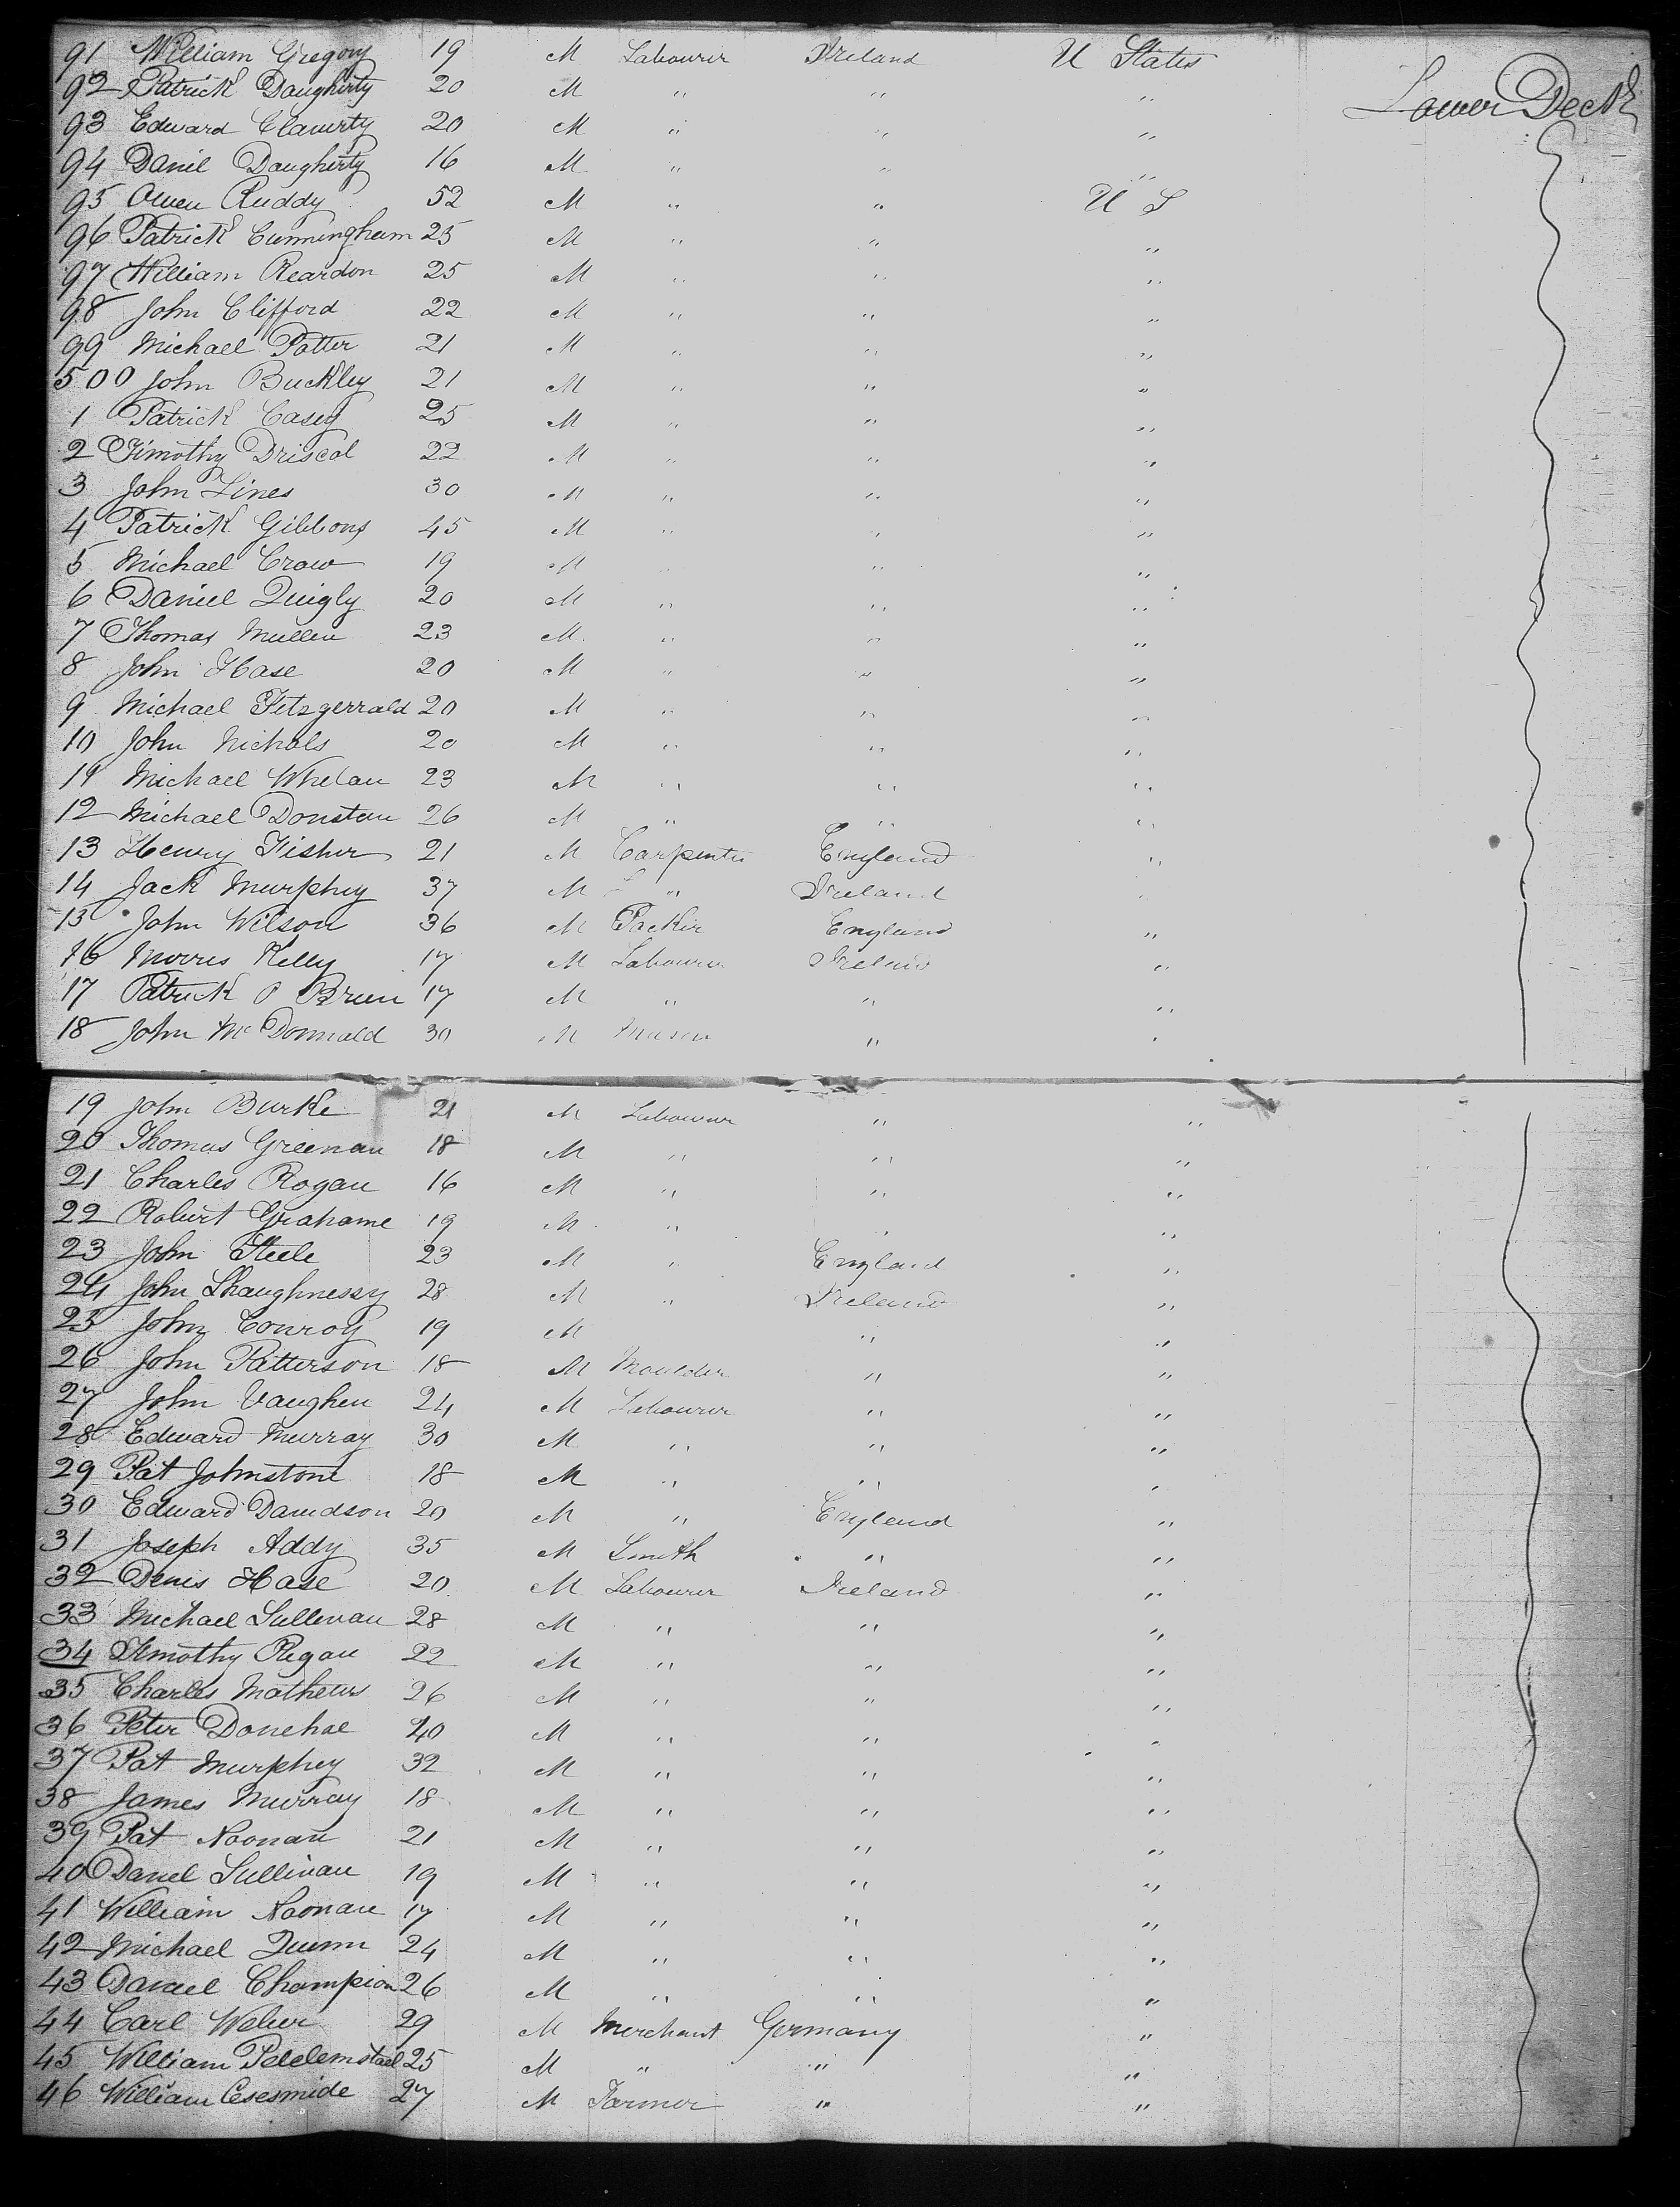 91 William Gregory 19 M Labourer Ireland U States
Lower Deck
92 Patrick Daugherty 20 M " " "
93 Edward Claverty 20 M " " "
94 Daniel Daugherty 16 M " " "
95 Owen Ruddy 52 M " " U S
96 Patrick Cunningham 25 M " " "
97 William Reardon 25 M " " "
98 John Clifford 22 M " " "
99 Michael Potter 21 M " " "
500 John Buckley 21 M " " "
1 Patrick Casey 25 M " " "
2 Timothy Driscol 22 M " " "
3 John Lines 30 M " " "
4 Patrick Gibbons 45 M " " "
5 Michael Crow 19 M " "
6 Daniel Quigly 20 M " " "
7 Thomas Mullen 23 M " " "
8 John Hase 20 M " " "
9 Michael Fitzgerrald 20 M " " "
10 John Nichols 20 M " " "
11 Michael Whelan 23 M " " "
12 Michael Donstan 26 M " " "
13 Henry Fisher 21 M Carpenter England "
14 Jack Murphy 37 M " Ireland
15 John Wilson 36 M Packer England "
16 Morris Kelly 17 M Labourer Ireland "
17 Patrick O Brien 17 M " " "
18 John McDonnald 30 M Mason " "
19 John Burke 21 M Labourer " "
20 Thomas Greenan 18 M " " "
21 Charles Rogan 16 M " " "
22 Robert Grahame 19 M " " "
23 John Steele 23 M " England "
24 John Shaughnessy 28 M " Ireland "
25 John Conroy 19 M " "
26 John Patterson 18 M Moulder " "
27 John Vaughen 24 M Labourer " "
28 Edward Murray 30 M " " "
29 Pat Johnstone 18 M " " "
30 Edward Davidson 20 M " England "
31 Joseph Addy 35 M Smith " "
32 Denis Hase 20 M Labourer Ireland "
33 Michael Sullevan 28 M " " "
34 Timothy Regan 22 M " " "
35 Charles Mathews 26 M " " "
36 Peter Donehoe 40 M " " "
37 Pat Murphey 32 M " " "
38 James Murray 18 M " " "
39 Pat Noonan 21 M " " "
40 Daniel Sullivan 19 M " " "
41 William Noonan 17 M " " "
42 Michael Quinn 24 M " " "
43 Daniel Champion 26 M " " "
44 Carl Weber 29 M Merchant Germany "
45 William 25 M " " "
46 William 27 M Farmer " "